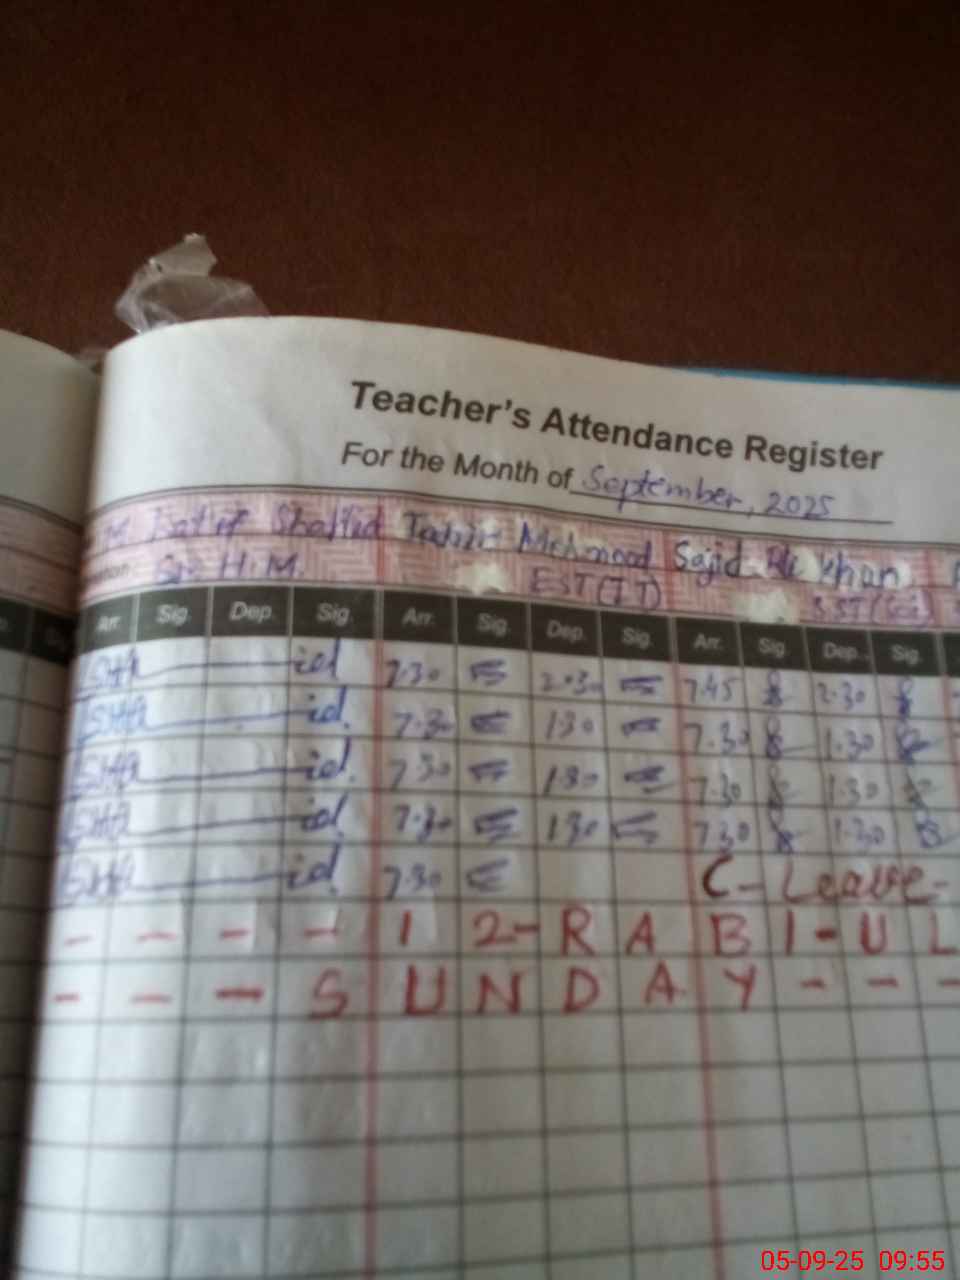 Teacher's Attendance Register
For the Month of September, 2025
Shahid Tahir Mehmood Sajid Ali Khan
Sr. H.M. EST (IT) SST (Sci)
Arr. Sig. Dep. Sig. Arr. Sig. Dep. Sig. Arr. Sig. Dep. Sig.
SHA id 7.30 2.30 7.45 2.30
SHA id. 7.30 1.30 7.30 1.30
SHA id. 7.30 1.30 7.30 1.30
SHA id. 7.30 1.30 7.30 1.30
SHA id. 7.30 C - Leave -
- - - - 12 - RABI - UL
- - - SUNDAY - - -
05-09-25 09:55